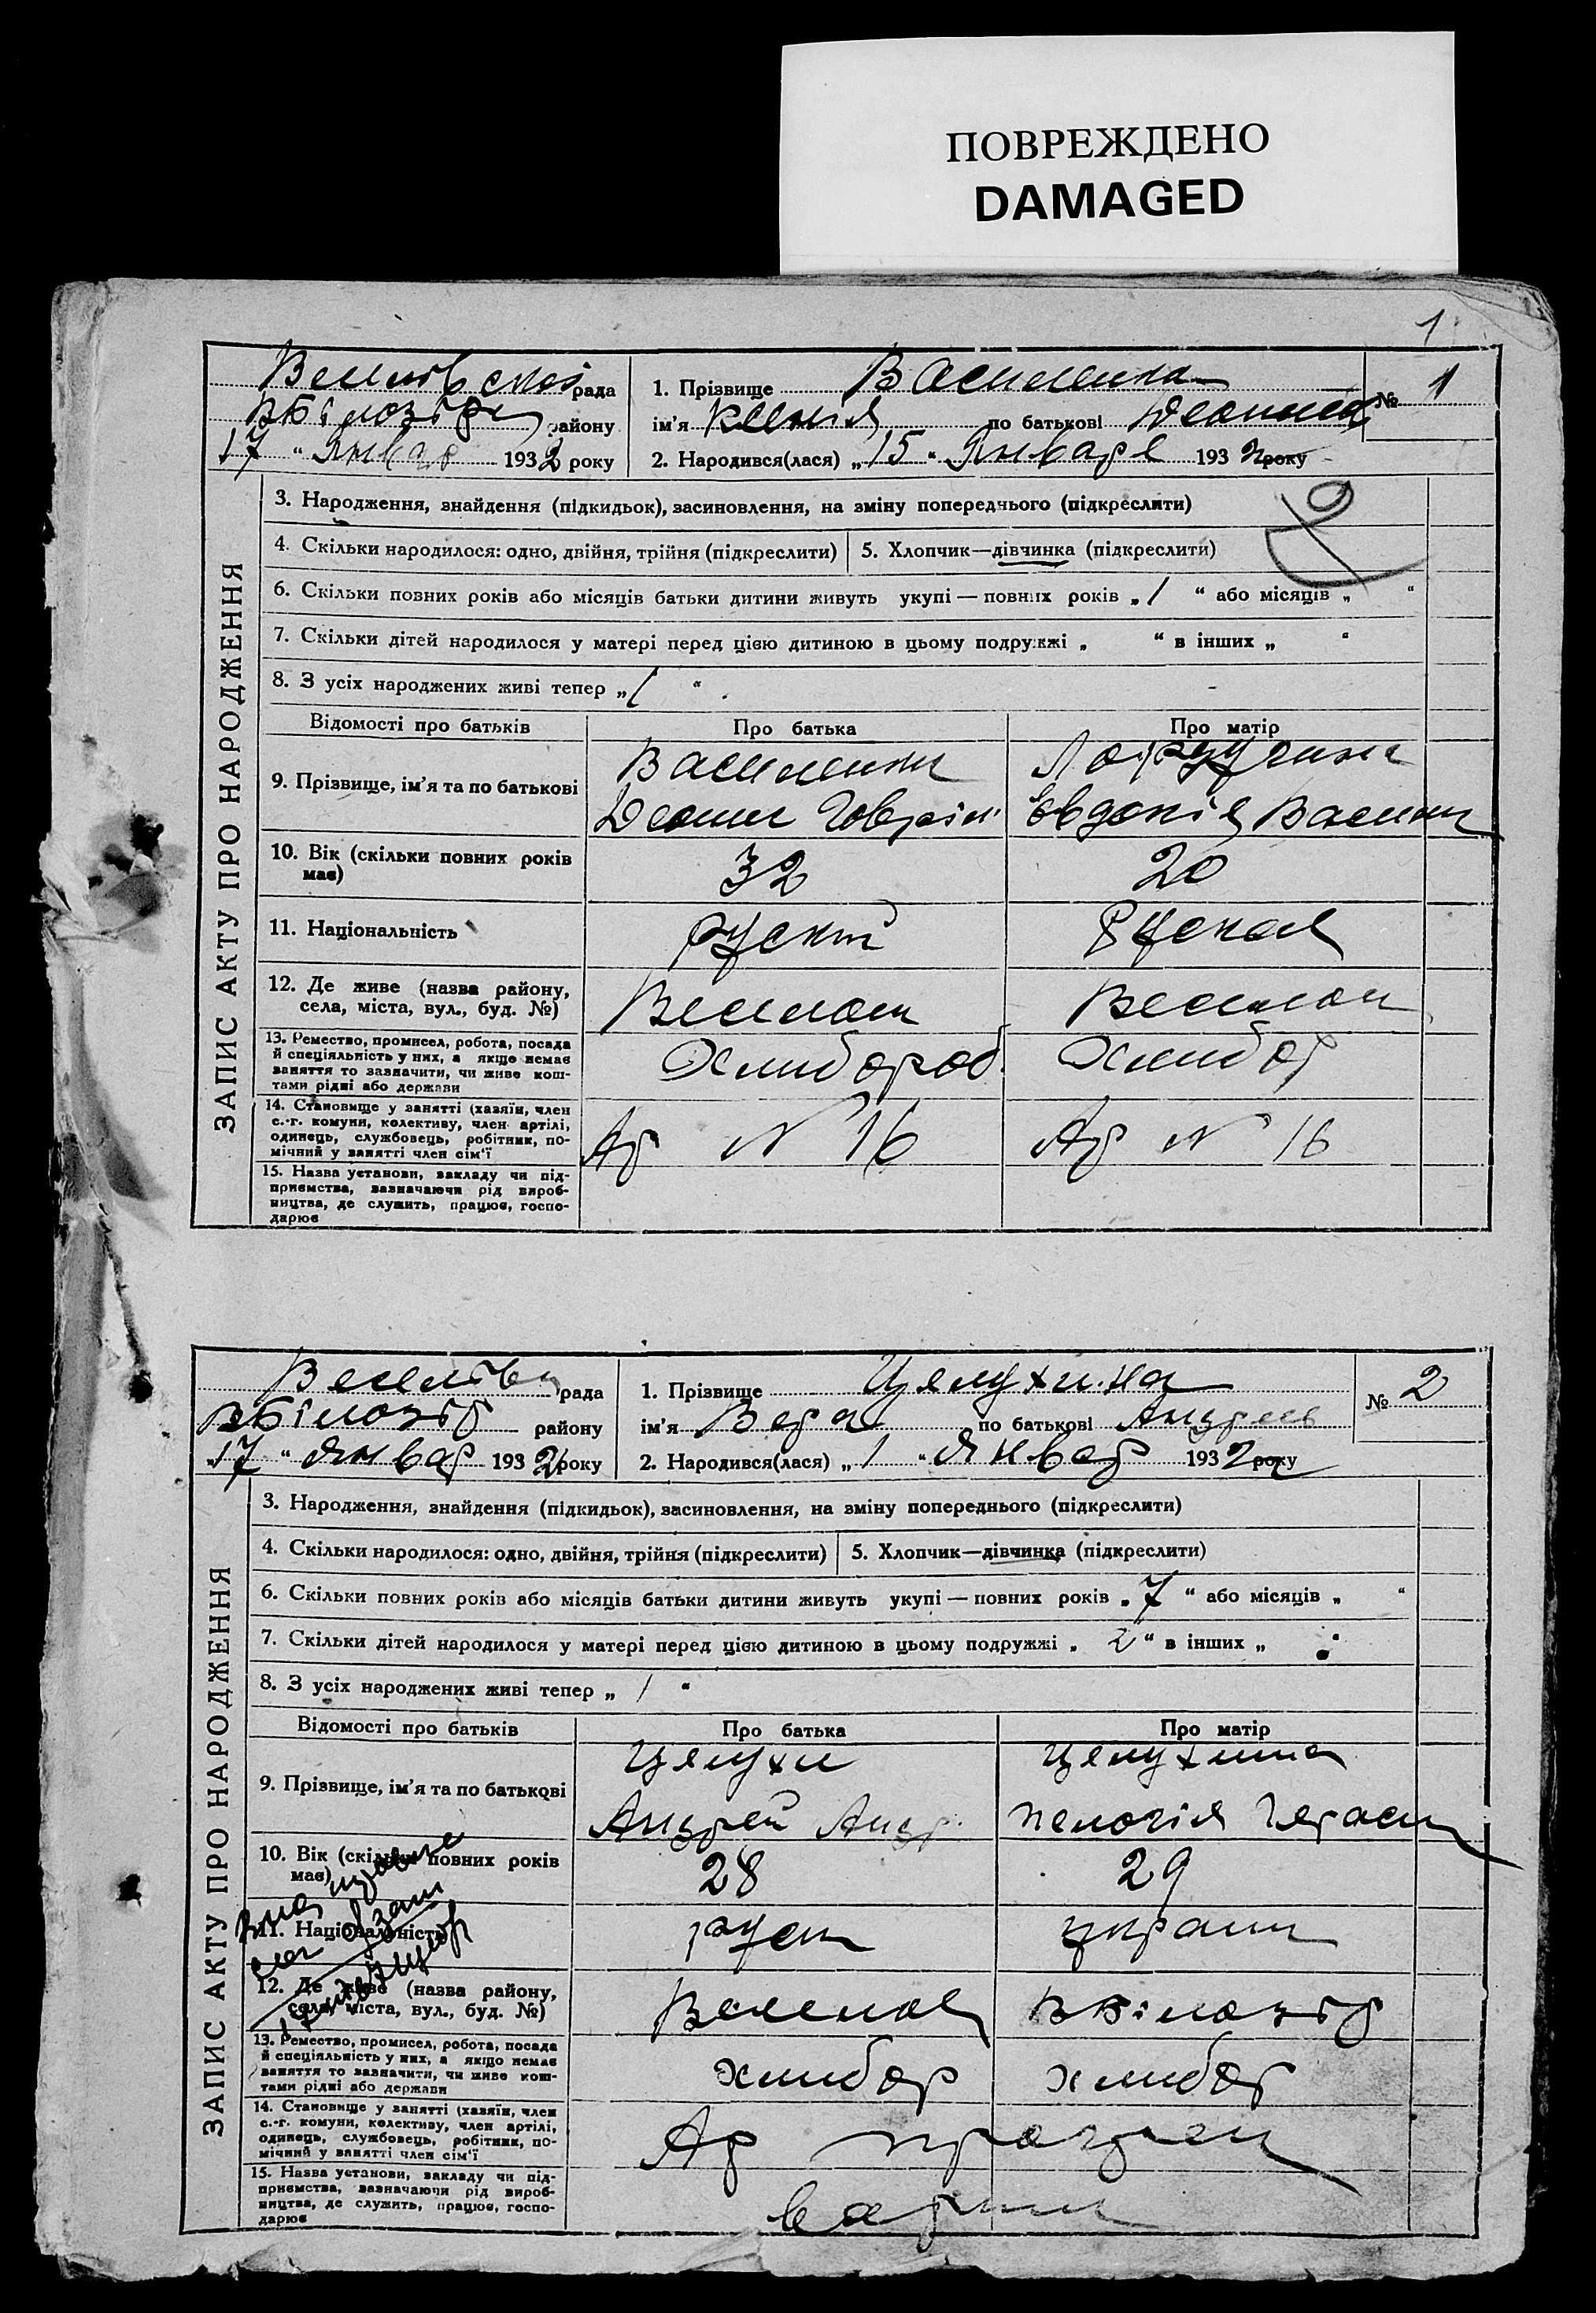 ПОВРЕЖДЕНО
DAMAGED
1
рада
району
17 " Января 1932 року
1. Прізвище Василенко № 1
ім'я Ксенія по батькові
2. Народився(лася) „ 15 " Января 1932 року
ЗАПИС АКТУ ПРО НАРОДЖЕННЯ
3. Народження, знайдення (підкидьок), засиновлення, на зміну попереднього (підкреслити)
4. Скільки народилося: одно, двійня, трійня (підкреслити) 5. Хлопчик—дівчинка (підкреслити)
6. Скільки повних років або місяців батьки дитини живуть укупі — повних років „ 1 " або місяців „ "
7. Скільки дітей народилося у матері перед цією дитиною в цьому подружжі „ " в інших „ "
8. З усіх народжених живі тепер „ 1 "
Відомості про батьків Про батька Про матір
9. Прізвище, ім'я та по батькові
Євдокія
10. Вік (скільки повних років має) 32 20
11. Національність руский Руская
12. Де живе (назва району, села, міста, вул., буд. №)
13. Ремество, промисел, робота, посада
й спеціяльність у них, а якщо немає
заняття то зазначити, чи живе кош-
тами рідні або держави
Хлибороб Хлибор
14. Становище у занятті (хазяїн, член
с.-г. комуни, колективу, член артілі,
одинець, службовець, робітник, по-
мічний у занятті член сім'ї
Ар N 16 Ар N 16
15. Назва установи, закладу чи під-
приємства, зазначаючи рід вироб-
ництва, де служить, працює, госпо-
дарює
рада
району
„17 " Январ 1932 року
1. Прізвище Целухина № 2
ім'я Вера по батькові Андреев
2. Народився(лася) „ 1 " Январ 1932 року
ЗАПИС АКТУ ПРО НАРОДЖЕННЯ
3. Народження, знайдення (підкидьок), засиновлення, на зміну попереднього (підкреслити)
4. Скільки народилося: одно, двійня, трійня (підкреслити) 5. Хлопчик—дівчинка (підкреслити)
6. Скільки повних років або місяців батьки дитини живуть укупі — повних років „ 7 " або місяців „ "
7. Скільки дітей народилося у матері перед цією дитиною в цьому подружжі „ 2 " в інших „ "
8. З усіх народжених живі тепер „ 1 "
Відомості про батьків Про батька Про матір
9. Прізвище, ім'я та по батькові
Целухи Целухина
Андрей Андр. Пелогія Герасим
10. Вік (скільки повних років має) 28 29
11. Національність руск украин
12. Де живе (назва району, села, міста, вул., буд. №)
13. Ремество, промисел, робота, посада
й спеціяльність у них, а якщо немає
заняття то зазначити, чи живе кош-
тами рідні або держави
хлибор хлибор
14. Становище у занятті (хазяїн, член
с.-г. комуни, колективу, член артілі,
одинець, службовець, робітник, по-
мічний у занятті член сім'ї
Ар
15. Назва установи, закладу чи під-
приємства, зазначаючи рід вироб-
ництва, де служить, працює, госпо-
дарює